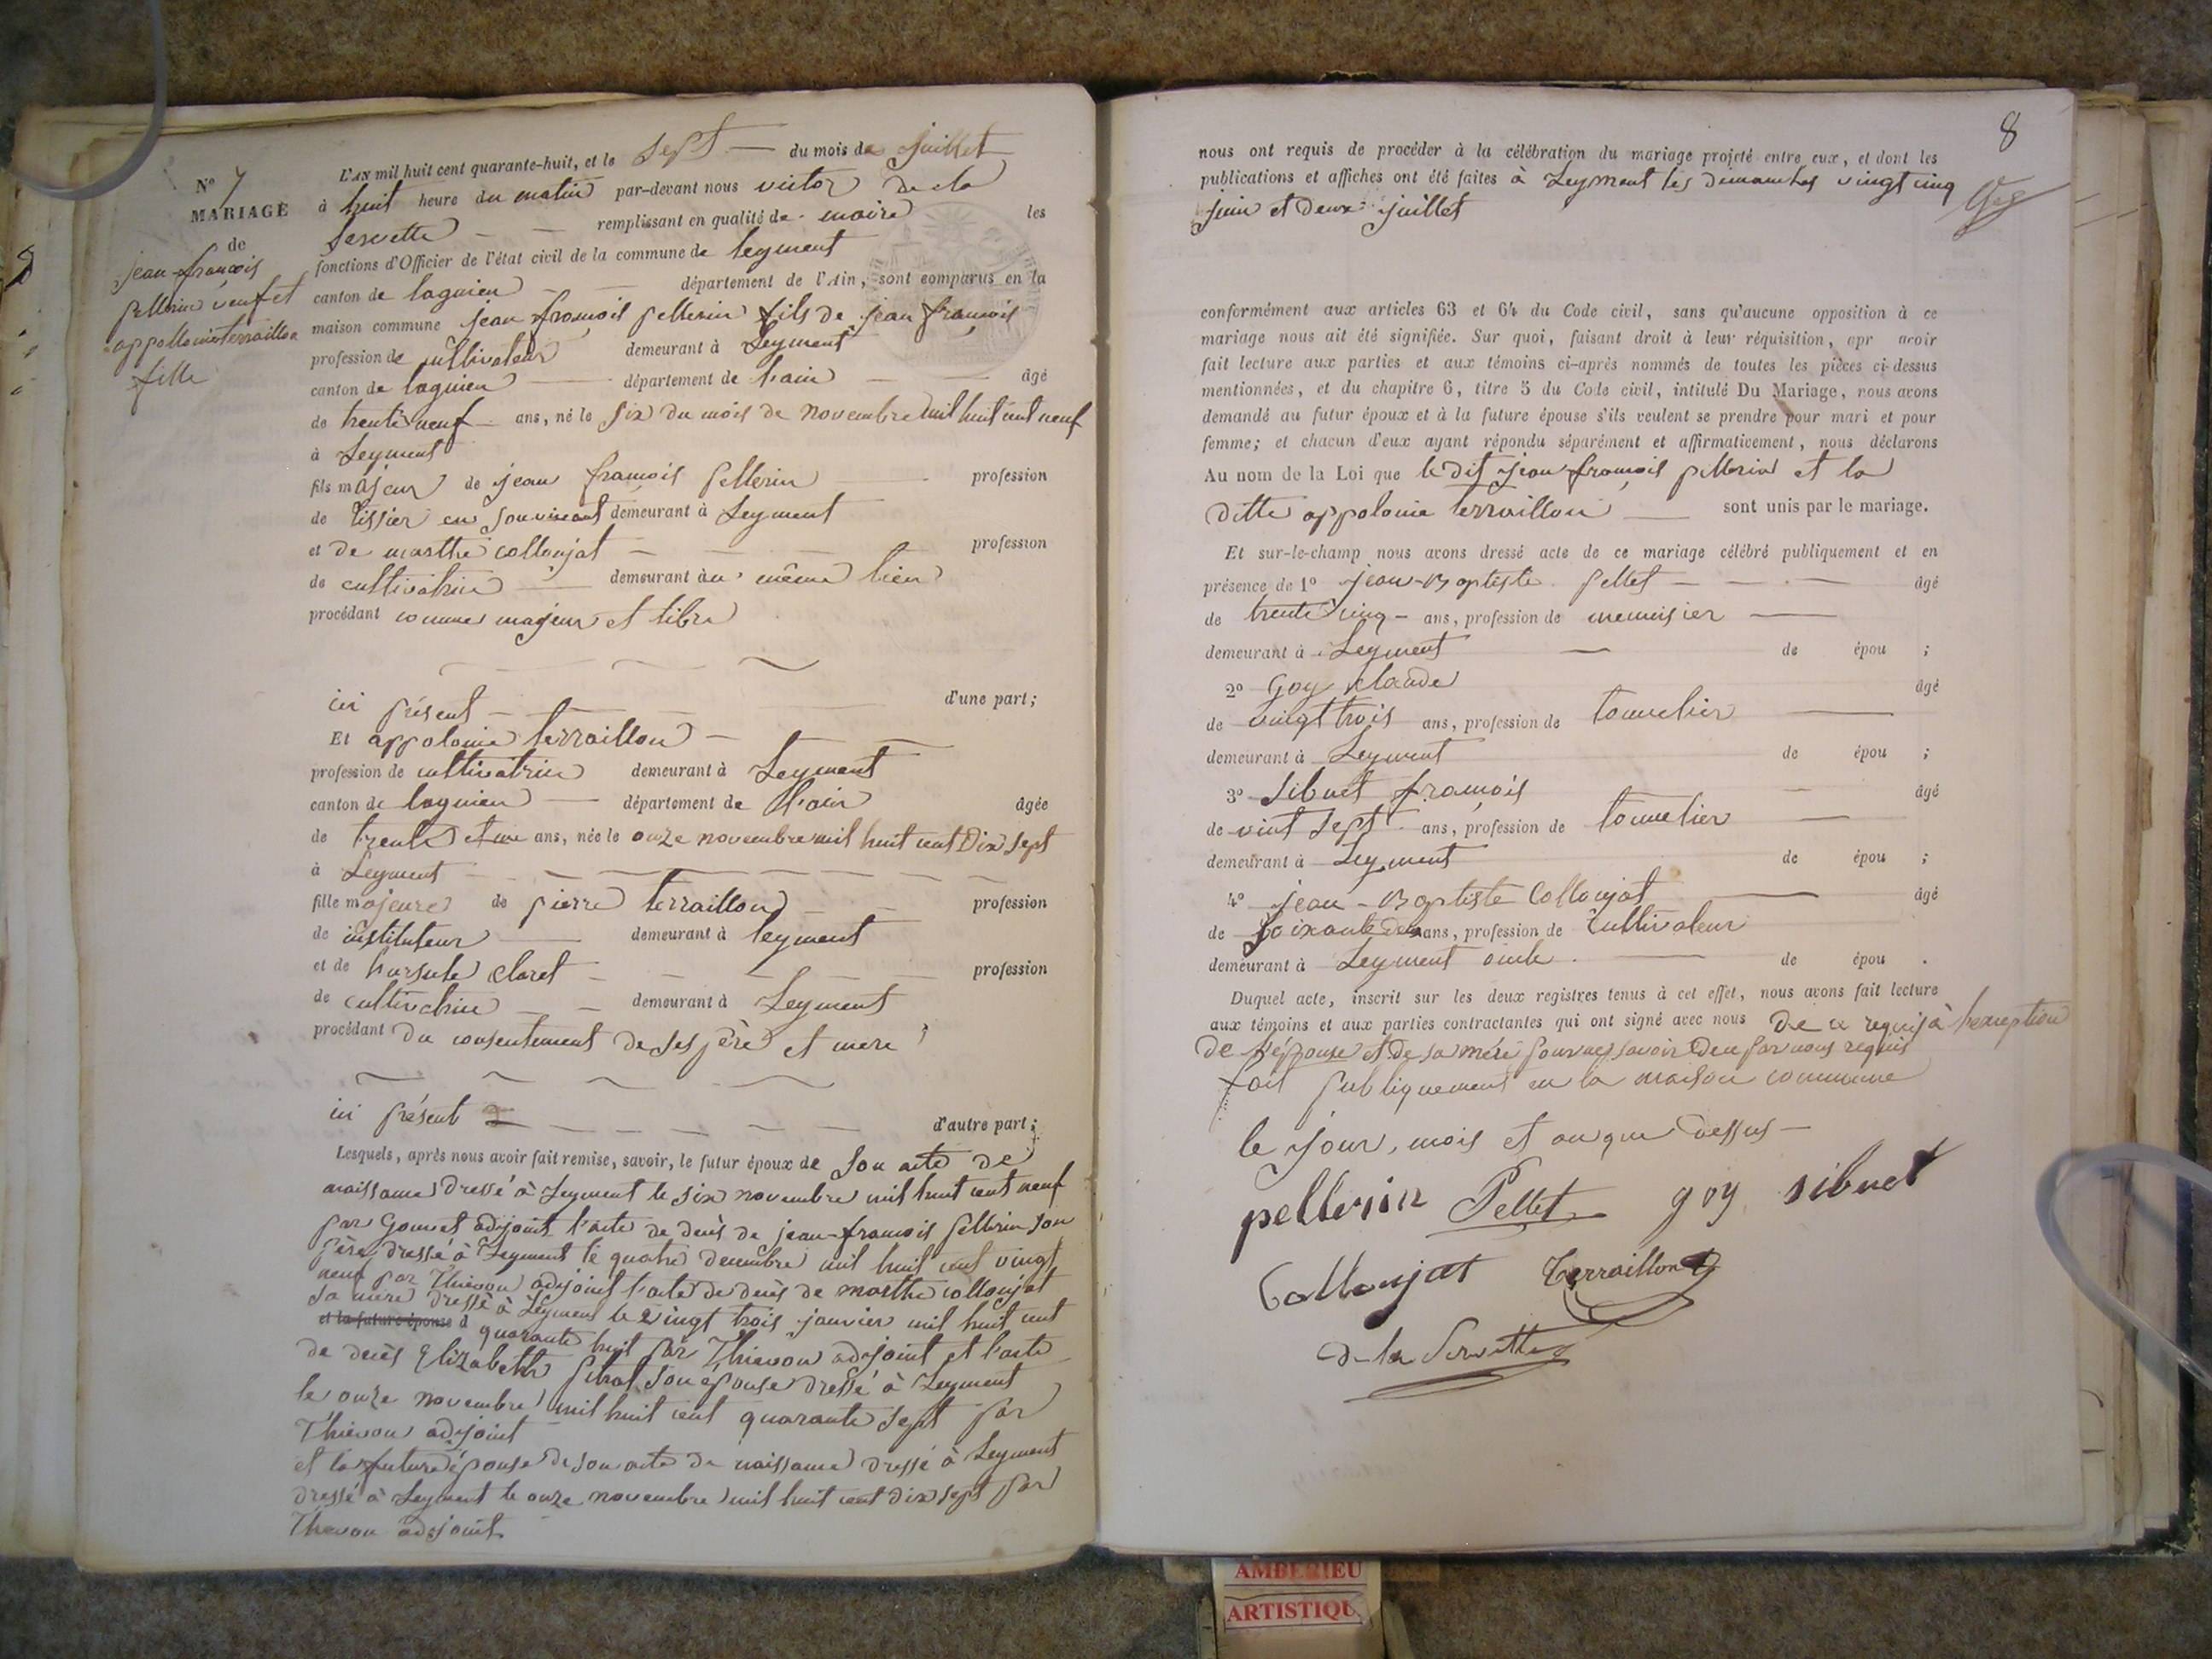 N° 7
MARIAGE
de
jean-françois
pellerin veuf et
appollonie terraillon
fille
L'AN mil huit cent quarante-huit, et le sept du mois de juillet
à huit heure du matin par-devant nous victor de la
servette remplissant en qualité de maire les
fonctions d'Officier de l'état civil de la commune de leyment
canton de lagnieu département de l'Ain, sont comparus en la
maison commune jean françois pellerin fils de jean françois
profession de cultivateur demeurant à Leyment
canton de lagnieu département de l'ain âgé
de trente neuf ans, né le six du mois de novembre mil huit cent neuf
à Leyment
fils majeur de jean françois pellerin profession
de tissier en son vivant demeurant à Leyment
et de marthe collonjat profession
de cultivatrice demeurant au même lieu
procédant comme majeur et libre
ici présent d'une part;
Et appolonie terraillon
profession de cultivatrice demeurant à Leyment
canton de lagnieu département de l'ain âgée
de trente et un ans, née le onze novembre mil huit cent dix sept
à Leyment
fille majeure de pierre terraillon profession
de instituteur demeurant à leyment
et de hursule claret profession
de cultivatrice demeurant à Leyment
procédant du consentement de ses père et mère
ici présent d'autre part;
Lesquels, après nous avoir fait remise, savoir, le futur époux de son acte de
naissance dressé à Leyment le six novembre mil huit cent neuf
par Gonnet adjoint l'acte de decès de jean-françois pellerin son
père dressé à Leyment le quatre decembre mil huit cent vingt
neuf par Thievon adjoint l'acte de decès de marthe collonjat
sa mère dressé à Leyment le vingt trois janvier mil huit cent
et la future épouse d quarante huit par Thievon adjoint et l'acte
de decès Elizabeth son épouse dressé à Leyment
le onze novembre mil huit cent quarante sept par
Thievon adjoint
et la future épouse de son acte de naissance dressé à Leyment
dressé à Leyment le onze novembre mil huit cent dix sept par
Thievon adjoint
8
nous ont requis de procéder à la célébration du mariage projeté entre eux, et dont les
publications et affiches ont été faites à Leyment les dimanches vingt cinq
juin et deux juillet
conformément aux articles 63 et 64 du Code civil, sans qu'aucune opposition à ce
mariage nous ait été signifiée. Sur quoi, faisant droit à leur réquisition, apr avoir
fait lecture aux parties et aux témoins ci-après nommés de toutes les pièces ci-dessus
mentionnées, et du chapitre 6, titre 5 du Code civil, intitulé Du Mariage, nous avons
demandé au futur époux et à la future épouse s'ils veulent se prendre pour mari et pour
femme; et chacun d'eux ayant répondu séparément et affirmativement, nous déclarons
Au nom de la Loi que le dit jean françois pellerin et la
ditte appolonie terraillon sont unis par le mariage.
Et sur-le-champ nous avons dressé acte de ce mariage célébré publiquement et en
présence de 1° jean-Baptiste pellet âgé
de trente cinq ans, profession de menuisier
demeurant à Leyment de épou ;
2° Goy claude âgé
de vingt trois ans, profession de tonnelier
demeurant à Leyment de épou ;
3° Sibuet françois âgé
de vint sept ans, profession de tonnelier
demeurant à Leyment de épou ;
4° jean-Baptiste Collonjat âgé
de soixante ans, profession de Cultivateur
demeurant à Leyment oncle de épou .
Duquel acte, inscrit sur les deux registres tenus à cet effet, nous avons fait lecture
aux témoins et aux parties contractantes qui ont signé avec nous de ce requis à l'exception
de l'épouse et de sa mère pour ne savoir de ce par nous requis
fait publiquement en la maison commune
le jour, mois et an que dessus
pellerin Pellet goy sibuet
Collonjat Terraillon
de la Servette
AMBERIEU
ARTISTIQU